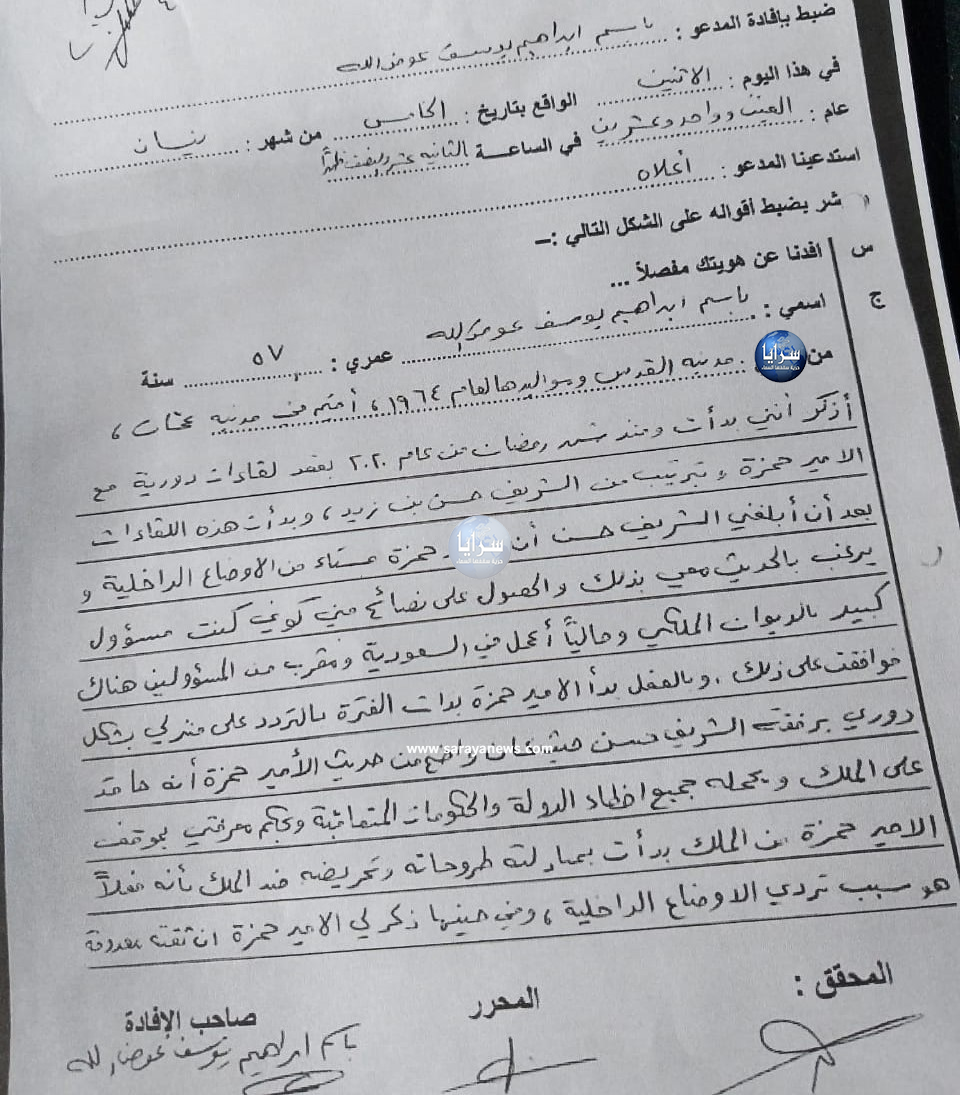 ضبط بإفادة المدعو : باسم ابراهيم يوسف عوض الله
في هذا اليوم : الاثنين الواقع بتاريخ : الخامس من شهر : نيسان
عام : الفين وواحد وعشرين في الساعة الثانية عشر ونصف ظهراً
استدعينا المدعو : أعلاه
شر بضبط أقواله على الشكل التالي :–
س افدنا عن هويتك مفصلاً ...
ج اسمي : باسم ابراهيم يوسف عوض الله عمري : ٥٧ سنة
من مدينة القدس ومواليدها لعام ١٩٦٤ ، أقيم في مدينة عمان ،
أذكر أنني بدأت ومنذ شهر رمضان من عام ٢٠٢٠ بعقد لقاءات دورية مع
الامير حمزة وبترتيب من الشريف حسن بن زيد ، وبدأت هذه اللقاءات
بعد أن أبلغني الشريف حسن أن حمزة مستاء من الاوضاع الداخلية و
يرغب بالحديث معي بذلك والحصول على نصائح مني كوني كنت مسؤول
كبير بالديوان الملكي وحالياً أعمل في السعودية ومقرب من المسؤولين هناك
فوافقت على ذلك . وبالفعل بدأ الامير حمزة بذات الفترة بالتردد على منزلي بشكل
دوري برفقته الشريف حسن حيث كان واضح من حديث الأمير حمزة أنه حاقد
على الملك ويحمله جميع اخطاء الدولة والحكومات المتعاقبة وبحكم معرفتي بموقف
الامير حمزة من الملك بدأت بمبادلته طروحاته وتحريضه ضد الملك بأنه فعلاً
هو سبب تردي الاوضاع الداخلية ، وفي حينها ذكر لي الامير حمزة ان ثقته معدومة
المحقق : المحرر صاحب الإفادة
باسم ابراهيم يوسف عوض الله
سرايا
حرية سقفها السماء
سرايا
حرية سقفها السماء
www.sarayanews.com